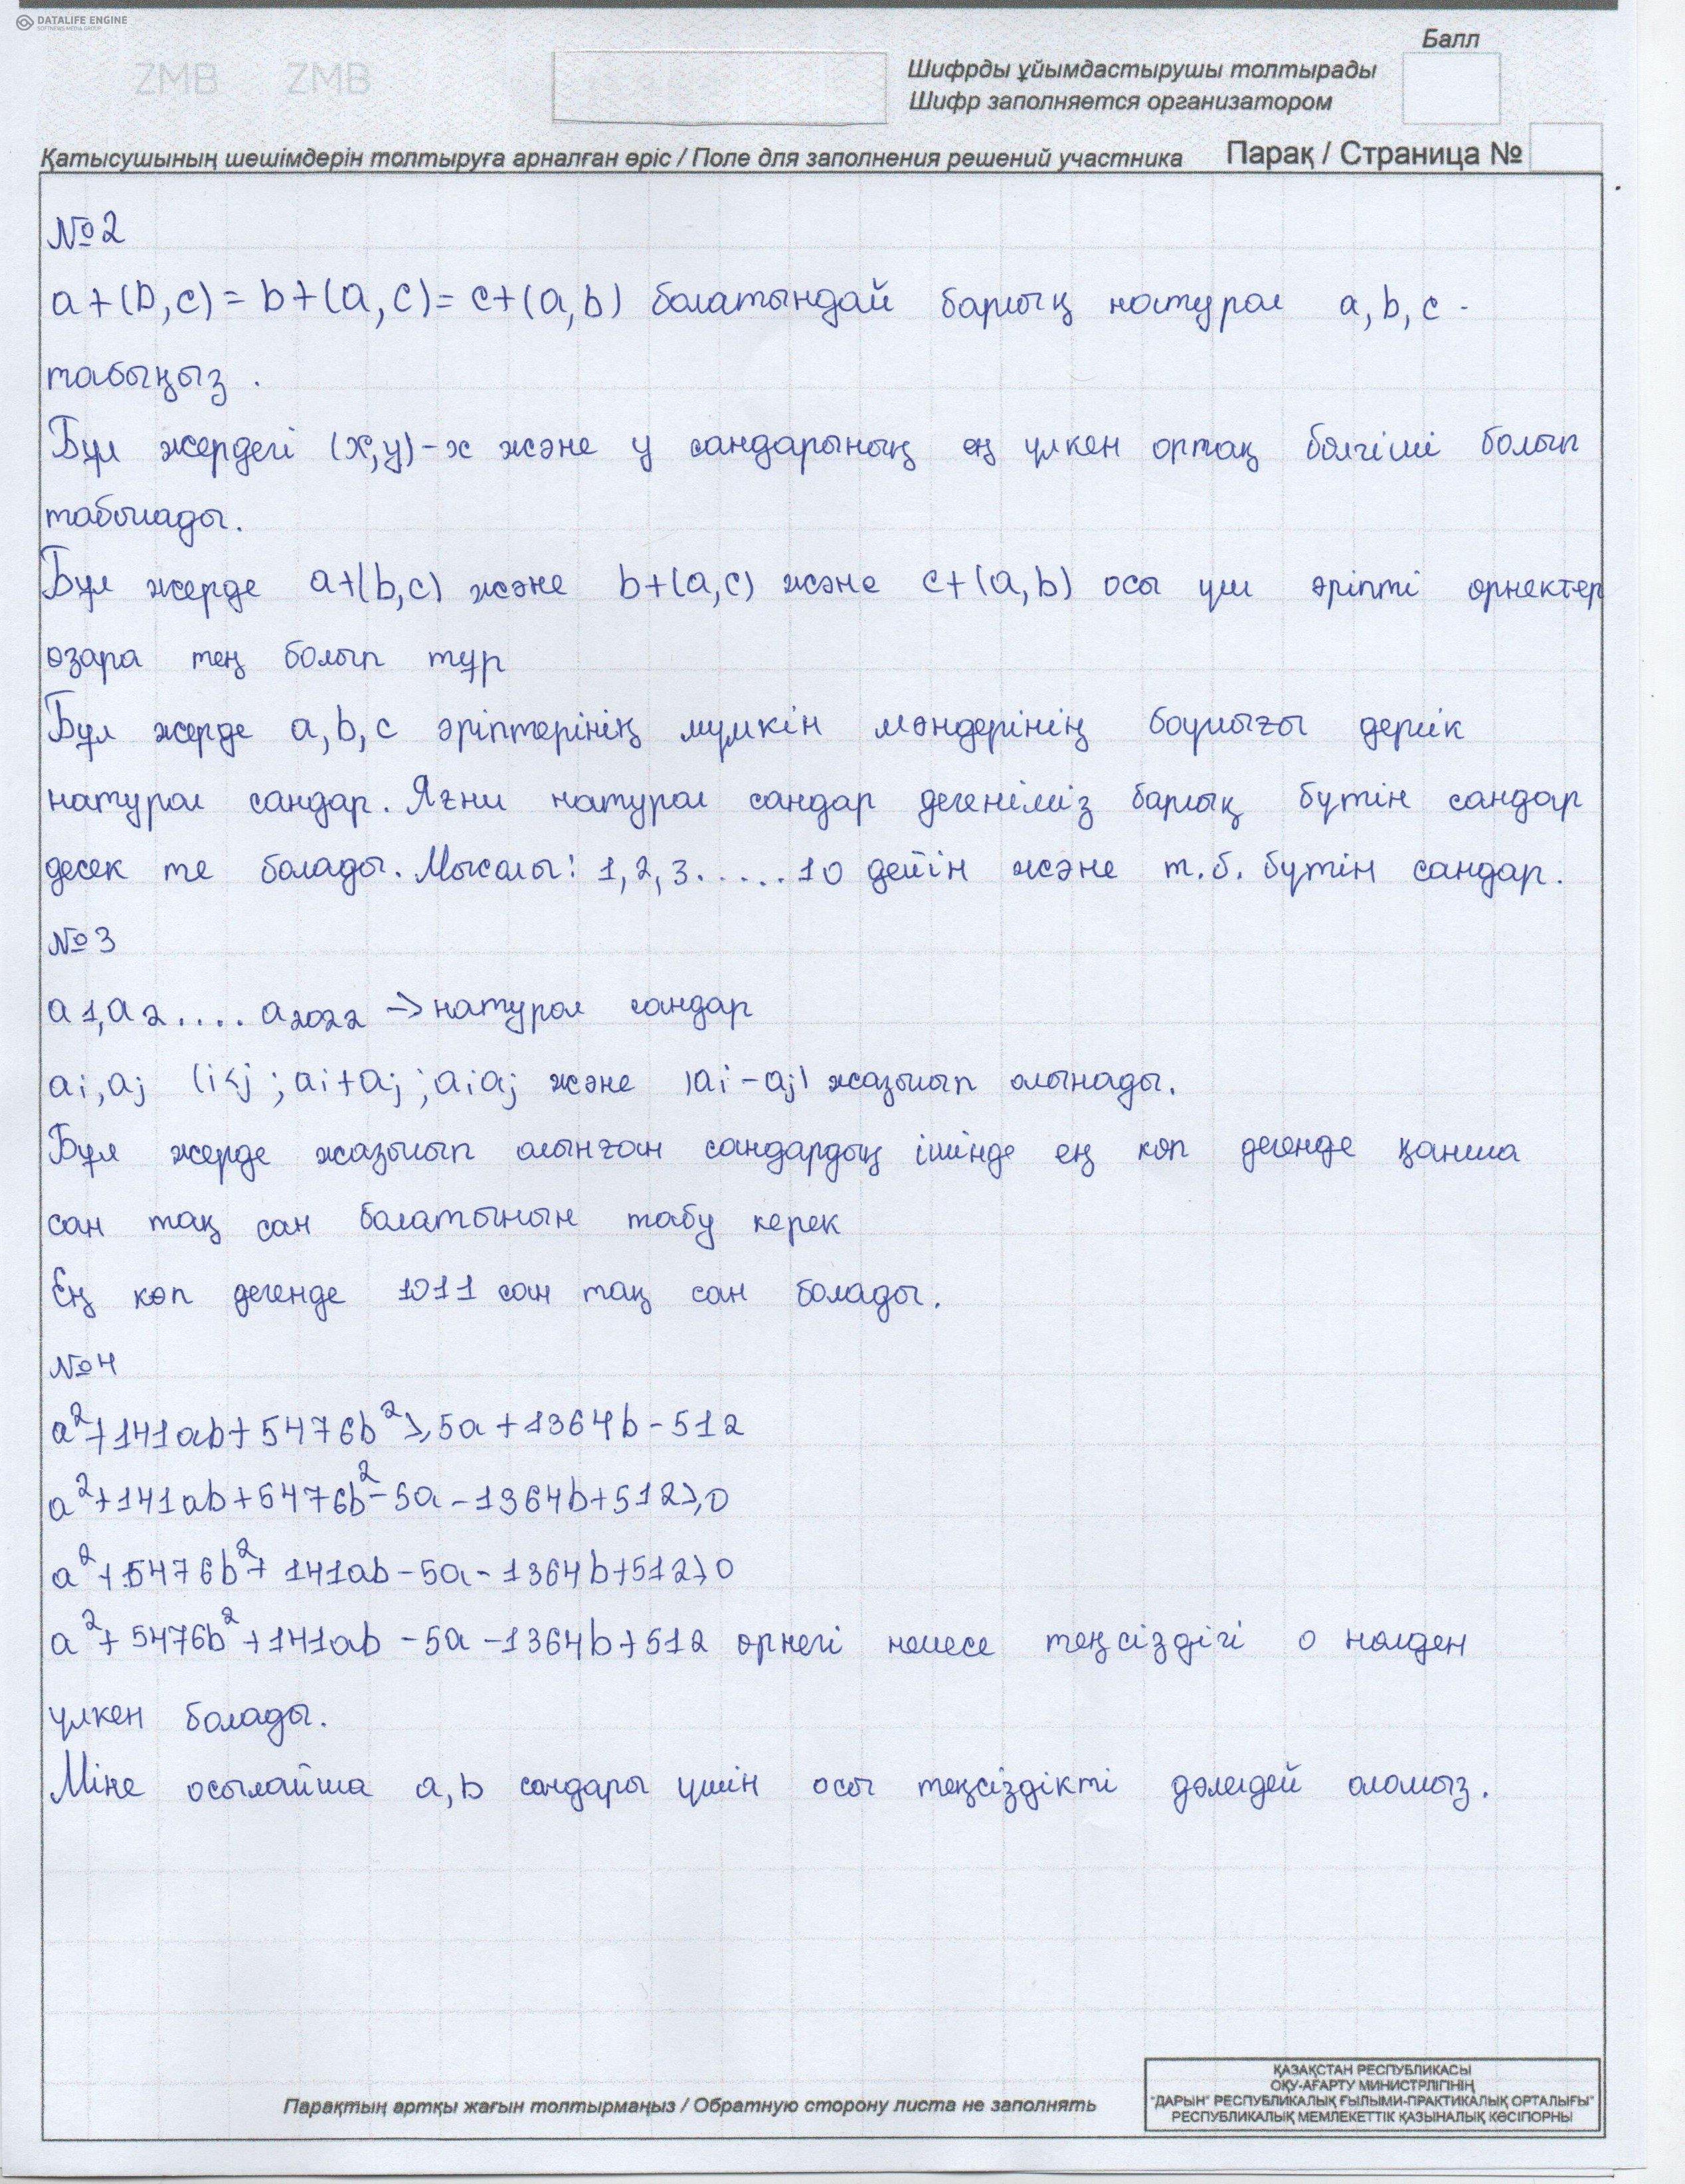 DATALIFE ENGINE
SOFTNEWS MEDIA GROUP
ZMB ZMB
Балл
Шифрды ұйымдастырушы толтырады
Шифр заполняется организатором
Қатысушының шешімдерін толтыруға арналған өріс / Поле для заполнения решений участника Парақ / Страница №
№2
a+(b,c)=b+(a,c)=c+(a,b) болатындай барлық натурал a,b,c -
табыңыз.
Бұл жердегі (x,y)-x және y сандарының ең үлкен ортақ бөлгіші болып
табылады.
Бұл жерде a+(b,c) және b+(a,c) және c+(a,b) осы үш әріпті өрнектер
өзара тең болып тұр
Бұл жерде a,b,c әріптерінің мүмкін мәндерінің барлығы дерлік
натурал сандар. Яғни натурал сандар дегеніміз барлық бүтін сандар
десек те болады. Мысалы: 1,2,3.....10 дейін және т.б. бүтін сандар.
№3
a1,a2....a2022 → натурал сандар
ai,aj (i<j; ai+aj; aiaj және |ai-aj| жазылып алынады.
Бұл жерде жазылып алынған сандардың ішінде ең көп дегенде қанша
сан тақ сан болатынын табу керек
Ең көп дегенде 1011 сан тақ сан болады.
№4
a²+141ab+5476b²≥5a+1364b-512
a²+141ab+5476b²-5a-1364b+512≥0
a²+5476b²+141ab-5a-1364b+512≥0
a²+5476b²+141ab-5a-1364b+512 өрнегі немесе теңсіздігі 0 нөлден
үлкен болады.
Міне осылайша a,b сандары үшін осы теңсіздікті дәлелдей аламыз.
Парақтың артқы жағын толтырмаңыз / Обратную сторону листа не заполнять
ҚАЗАҚСТАН РЕСПУБЛИКАСЫ
ОҚУ-АҒАРТУ МИНИСТРЛІГІНІҢ
"ДАРЫН" РЕСПУБЛИКАЛЫҚ ҒЫЛЫМИ-ПРАКТИКАЛЫҚ ОРТАЛЫҒЫ"
РЕСПУБЛИКАЛЫҚ МЕМЛЕКЕТТІК ҚАЗЫНАЛЫҚ КӘСІПОРНЫ